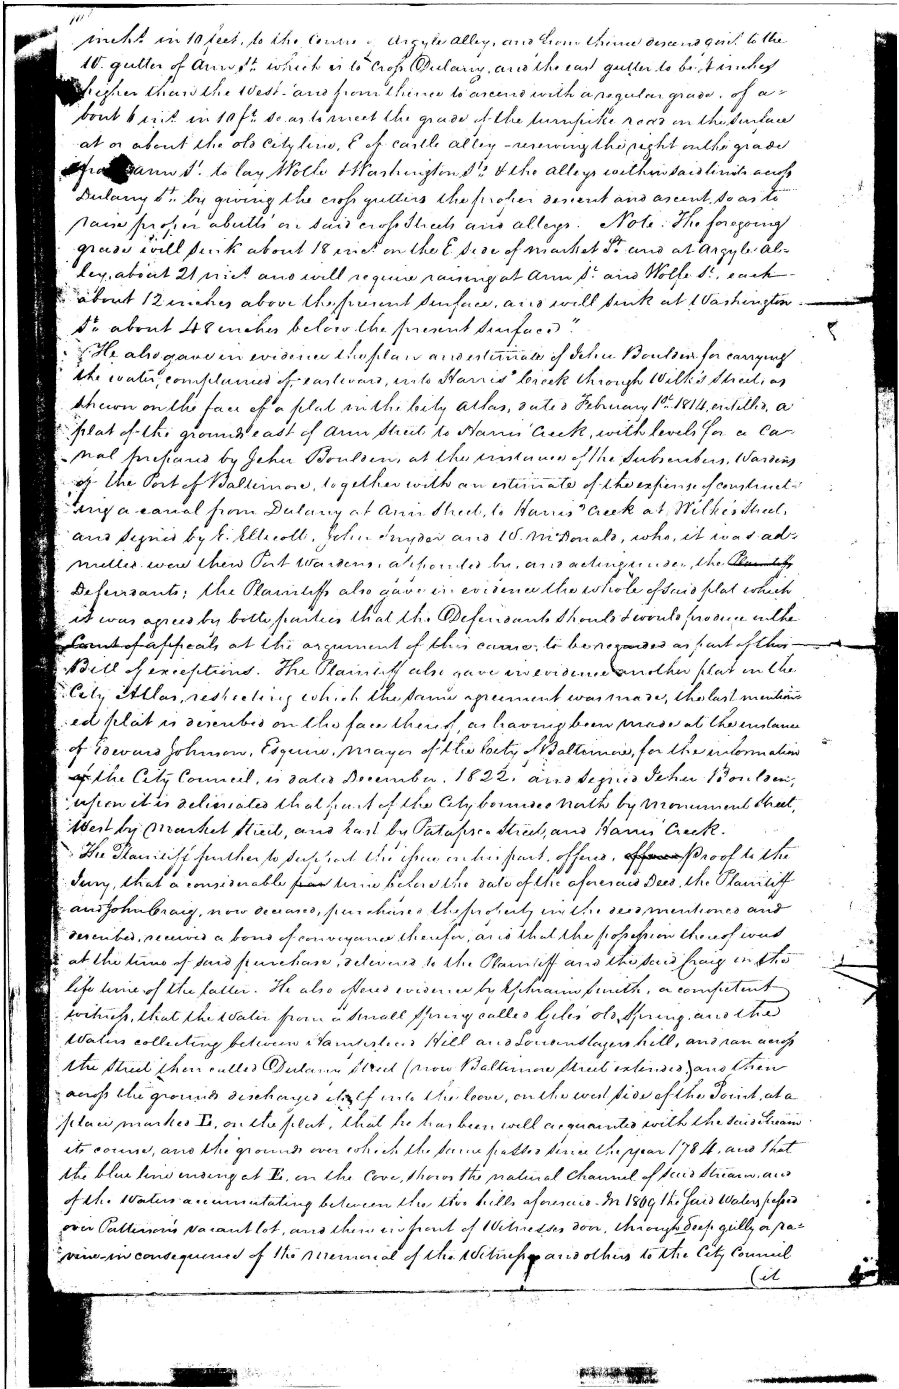 inchs. in 10 feet, to the Centre of Argyle alley, and from thence descending to the
W. gutter of Ann St. which is to cross Dulany, and the east gutter to be 4 inches
higher than the West - and from thence to ascend with a regular grade, of a-
bout 6 ins. in 10 ft. so as to meet the grade of the turnpike road on the surface
at or about the old City line, E of Castle alley - reserving the right on the grade
from Ann St. to lay Wolfe & Washington Sts. & the alleys within said limits across
Dulany St. by giving the cross gutters the proper descent and ascent, so as to
raise proper abutts on said cross Streets and alleys. Note: The foregoing
grade will sink about 18 ins. on the E side of market St. and at Argyle Al-
ley, about 21 ins. and will require raising at Ann St. and Wolfe St. each
about 12 inches above the present surface, and will sink at Washington
St. about 48 inches below the present surface."
He also gave in evidence the plan and estimate of Jehu Boulden for carrying
the water, complained of, eastward, into Harris' Creek through Wilk's Street, as
shewn on the face of a plat in the City Atlas, dated February 1st. 1814, entitled, a
plat of the ground east of Ann Street to Harris Creek, with levels for a Ca-
nal prepared by Jehu Boulden, at the instance of the Subscribers, Wardens
of the Port of Baltimore, together with an estimate of the expense of construct-
ing a canal from Dulany at Ann Street, to Harris' Creek at Wilk's Street,
and signed by E. Ellicott, John Snyder and W. McDonald, who, it was ad-
mitted were then Port Wardens, appointed by, and acting under, the Plaintiffs
Defendants; the Plaintiffs also gave in evidence the whole of said plat which
it was agreed by both parties that the Defendants should & would produce in the
Court of appeals at the argument of this cause, to be regarded as part of this
Bill of exceptions. The Plaintiff also gave in evidence another plat in the
City Atlas, respecting which the same agreement was made, the last mention-
ed plat is described on the face thereof, as having been made at the instance
of Edward Johnson, Esquire, mayor of the City of Baltimore, for the information
of the City Council, is dated December, 1822, and signed Jehu Boulden,
upon it is delineated that part of the City bounded North by Monument Street,
West by Market Street, and East by Patapsco Street, and Harris' Creek.
The Plaintiff further to support the issue on his part, offered, offered proof to the
Jury, that a considerable time before the date of the aforesaid Deed, the Plaintiff
and John Craig, now deceased, purchased the property in the deed mentioned and
described, received a bond of conveyance therefor, and that the possession thereof was
at the time of said purchase, delivered to the Plaintiff and the said Craig in the
life time of the latter. He also offered evidence by Ephraim Smith, a competent
witness, that the water from a small Spring called Giles' old Spring, and the
Waters collecting between Hampstead Hill and Loudenslagers hill, and ran across
the Street then called Dulany Street (now Baltimore Street extended) and then
across the grounds discharged itself into the Cove, on the west side of the Point, at a
place marked E, on the plat, that he has been well acquainted with the said Stream
its course, and the grounds over which the same passed since the year 1784, and that
the blue line ending at E, on the Cove, shows the natural channel of said Stream, and
of the Waters accumulating between the two hills aforesaid. In 1809 the said Waters passed
over Patterson's vacant lot, and then in front of Witnesses door, through deep gully or ra-
vine - in consequence of the memorial of the Witness, and others to the City Council
(it